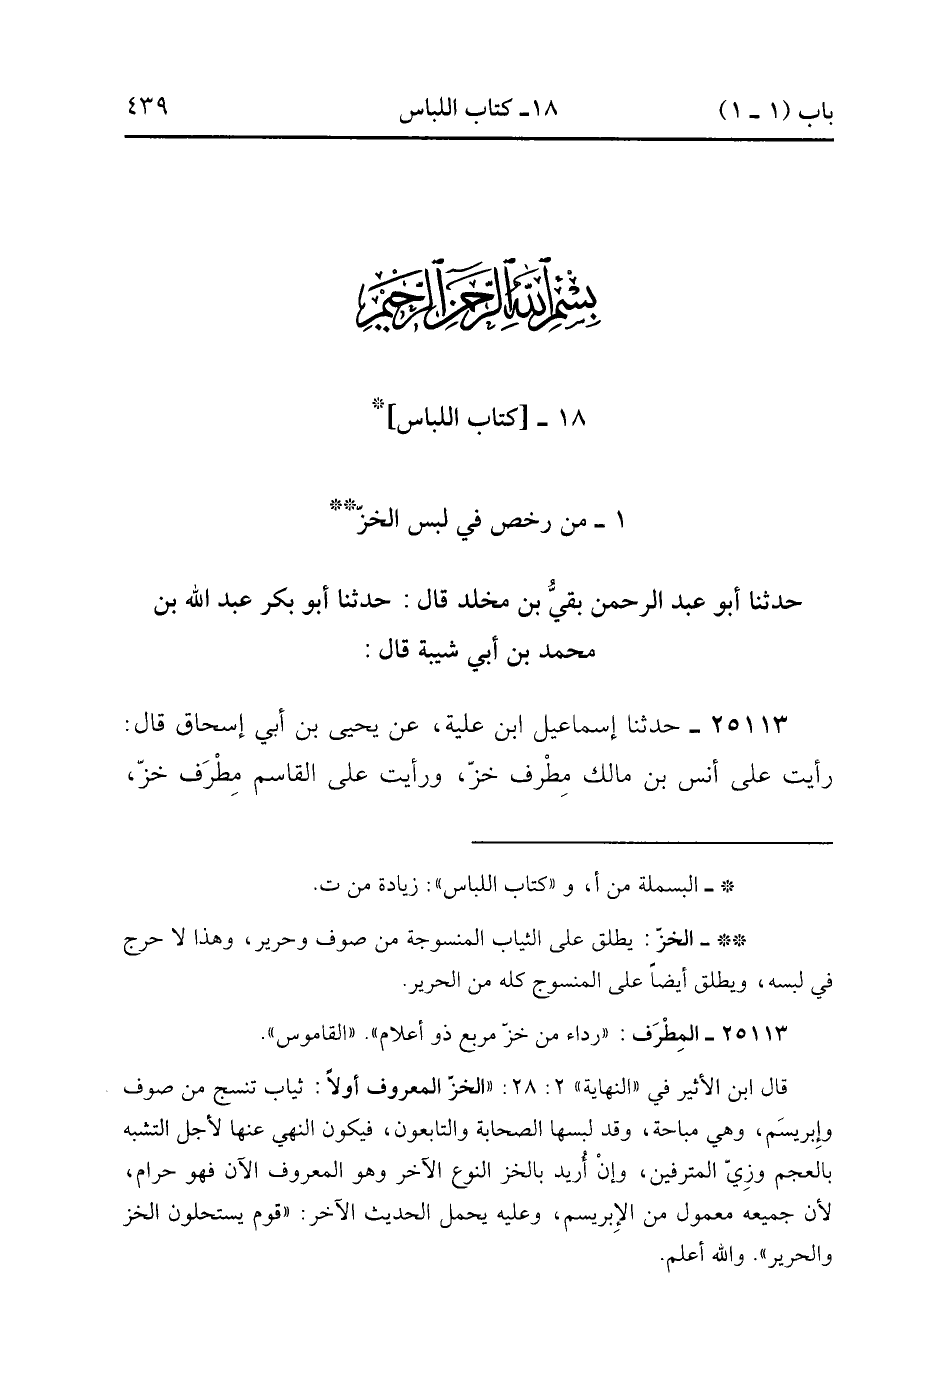 باب (١ - ١) ١٨- كتاب اللباس ٤٣٩
بسم الله الرحمن الرحيم
١٨ - [كتاب اللباس]*
١ - من رخص في لبس الخزّ**
حدثنا أبو عبد الرحمن بقيُّ بن مخلد قال : حدثنا أبو بكر عبد الله بن
محمد بن أبي شيبة قال :
٢٥١١٣ - حدثنا إسماعيل ابن علية، عن يحيى بن أبي إسحاق قال:
رأيت على أنس بن مالك مِطْرف خزّ، ورأيت على القاسم مِطْرَف خزّ،
* - البسملة من أ، و «كتاب اللباس»: زيادة من ت.
** - الخزّ : يطلق على الثياب المنسوجة من صوف وحرير، وهذا لا حرج
في لبسه، ويطلق أيضاً على المنسوج كله من الحرير.
٢٥١١٣ - المِطْرَف : «رداء من خزّ مربع ذو أعلام». «القاموس».
قال ابن الأثير في «النهاية» ٢: ٢٨: «الخزّ المعروف أولاً : ثياب تنسج من صوف
وإبريسَم، وهي مباحة، وقد لبسها الصحابة والتابعون، فيكون النهي عنها لأجل التشبه
بالعجم وزِيّ المترفين، وإنْ أُريد بالخز النوع الآخر وهو المعروف الآن فهو حرام،
لأن جميعه معمول من الإبريسم، وعليه يحمل الحديث الآخر: «قوم يستحلون الخز
والحرير». والله أعلم.